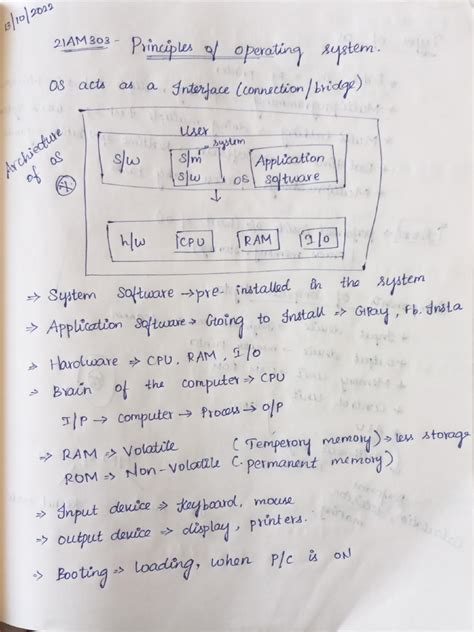 13/10/2022
21AM303 - Principles of operating system.
OS acts as a Interface (connection/bridge)
Architecture of OS
User
system
S/w
S/m S/w
OS
Application Software
h/w
CPU
RAM
I/O
⇒ System Software → pre-installed in the system
⇒ Application Software → Going to Install ⇒ GPay, Fb, Insta
⇒ Hardware ⇒ CPU, RAM, I/O
⇒ Brain of the computer ⇒ CPU
I/P → computer → Process → O/P
⇒ RAM ⇒ Volatile (Temperory memory) → less storage
ROM ⇒ Non-Volatile (permanent memory)
⇒ Input device ⇒ Keyboard, mouse
⇒ output device ⇒ display, printers.
⇒ Booting ⇒ loading, when P/C is ON